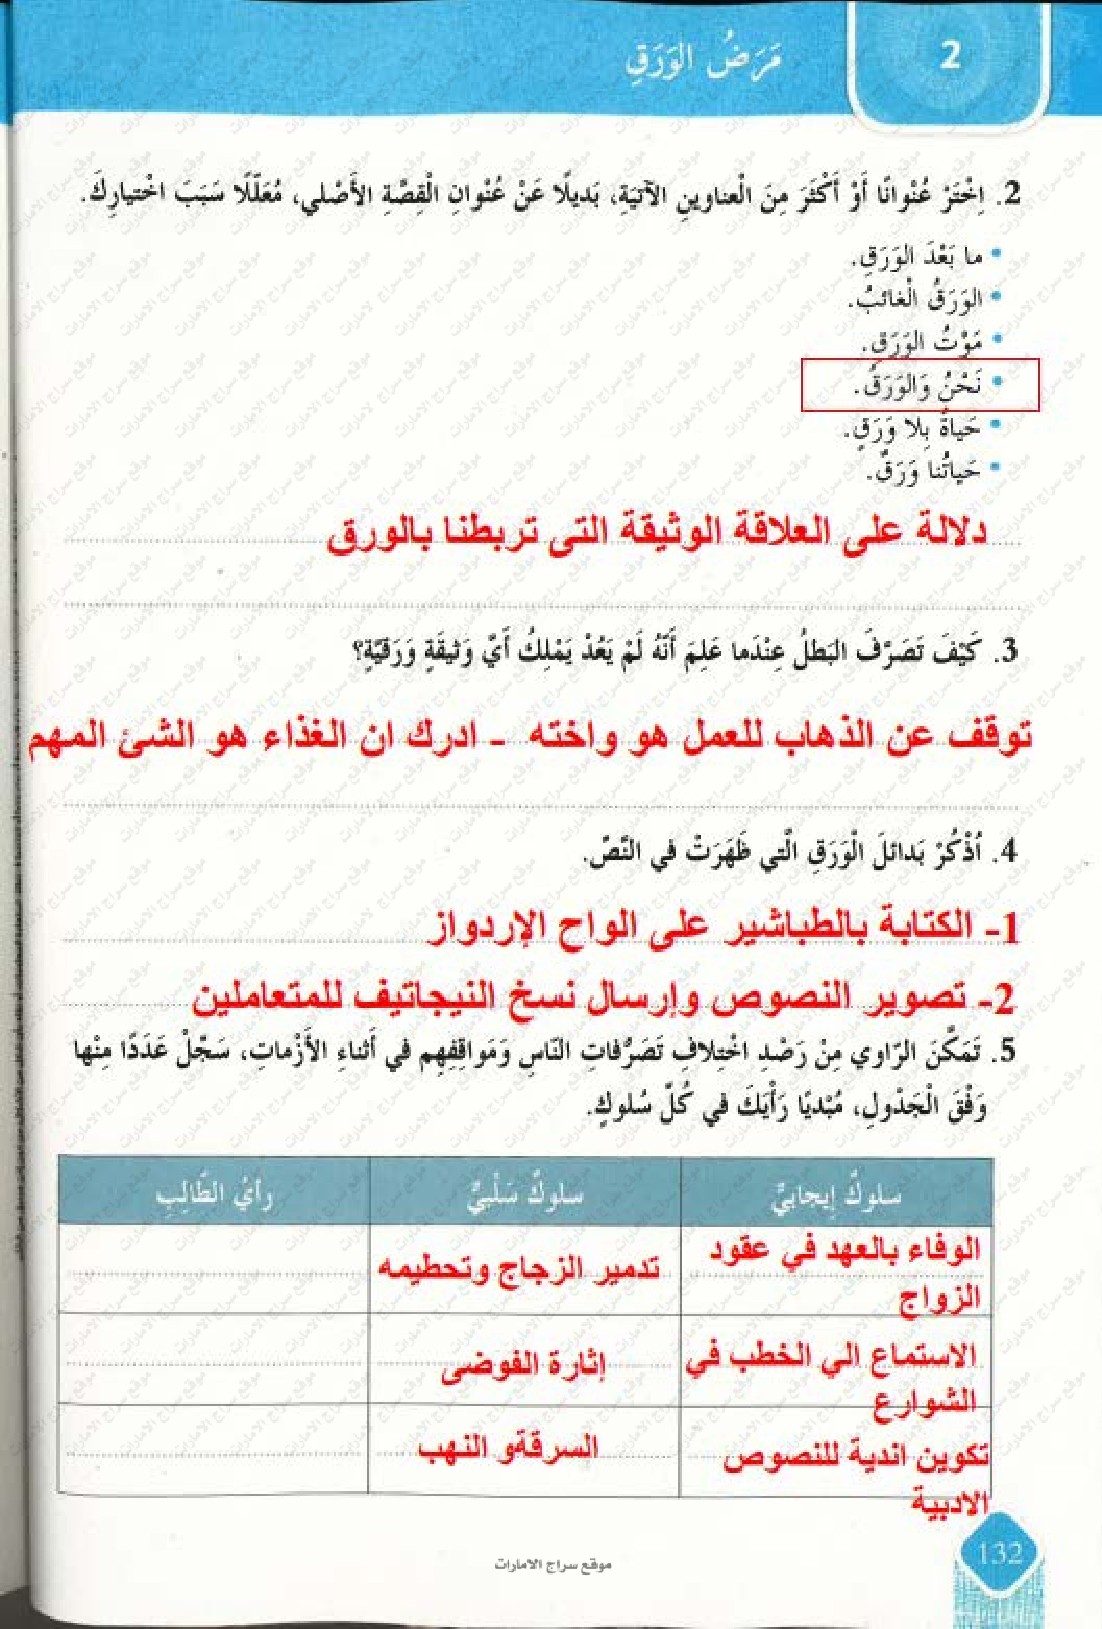 2
مَرَضُ الوَرَقِ
2. اِخْتَرْ عُنْوانًا أَوْ أَكْثَرَ مِنَ الْعناوينِ الآتيَةِ، بَديلًا عَنْ عُنْوانِ الْقِصَّةِ الأَصْلي، مُعَلّلًا سَبَبَ اخْتيارِكَ.
• ما بَعْدَ الوَرَقِ.
• الوَرَقُ الْغائبُ.
• مَوْتُ الوَرَقِ.
• نَحْنُ وَالوَرَقُ.
• حَياةٌ بِلا وَرَقٍ.
• حَياتُنا وَرَقٌ.
دلالة على العلاقة الوثيقة التى تربطنا بالورق
3. كَيْفَ تَصَرَّفَ البَطلُ عِنْدَما عَلِمَ أَنَّهُ لَمْ يَعُدْ يَمْلِكُ أَيَّ وَثيقَةٍ وَرَقيَّةٍ؟
توقف عن الذهاب للعمل هو واخته - ادرك ان الغذاء هو الشئ المهم
4. اُذْكُرْ بَدائلَ الْوَرَقِ الَّتي ظَهَرَتْ في النَّصّ.
1- الكتابة بالطباشير على الواح الإردواز
2- تصوير النصوص وإرسال نسخ النيجاتيف للمتعاملين
5. تَمَكَّنَ الرّاوي مِنْ رَصْدِ اخْتِلافِ تَصَرُّفاتِ النّاسِ وَمَواقِفِهِم في أَثناءِ الأَزْماتِ، سَجّلْ عَدَدًا مِنْها
وَفْقَ الْجَدْولِ، مُبْديًا رَأْيَكَ في كُلّ سُلوكٍ.
سلوكٌ إيجابيٌّ
سلوكٌ سَلْبيٌّ
رأيُ الطّالِبِ
الوفاء بالعهد في عقود
الزواج
تدمير الزجاج وتحطيمه
الاستماع الي الخطب في
الشوارع
إثارة الفوضى
تكوين اندية للنصوص
الادبية
السرقةو النهب
132
موقع سراج الامارات